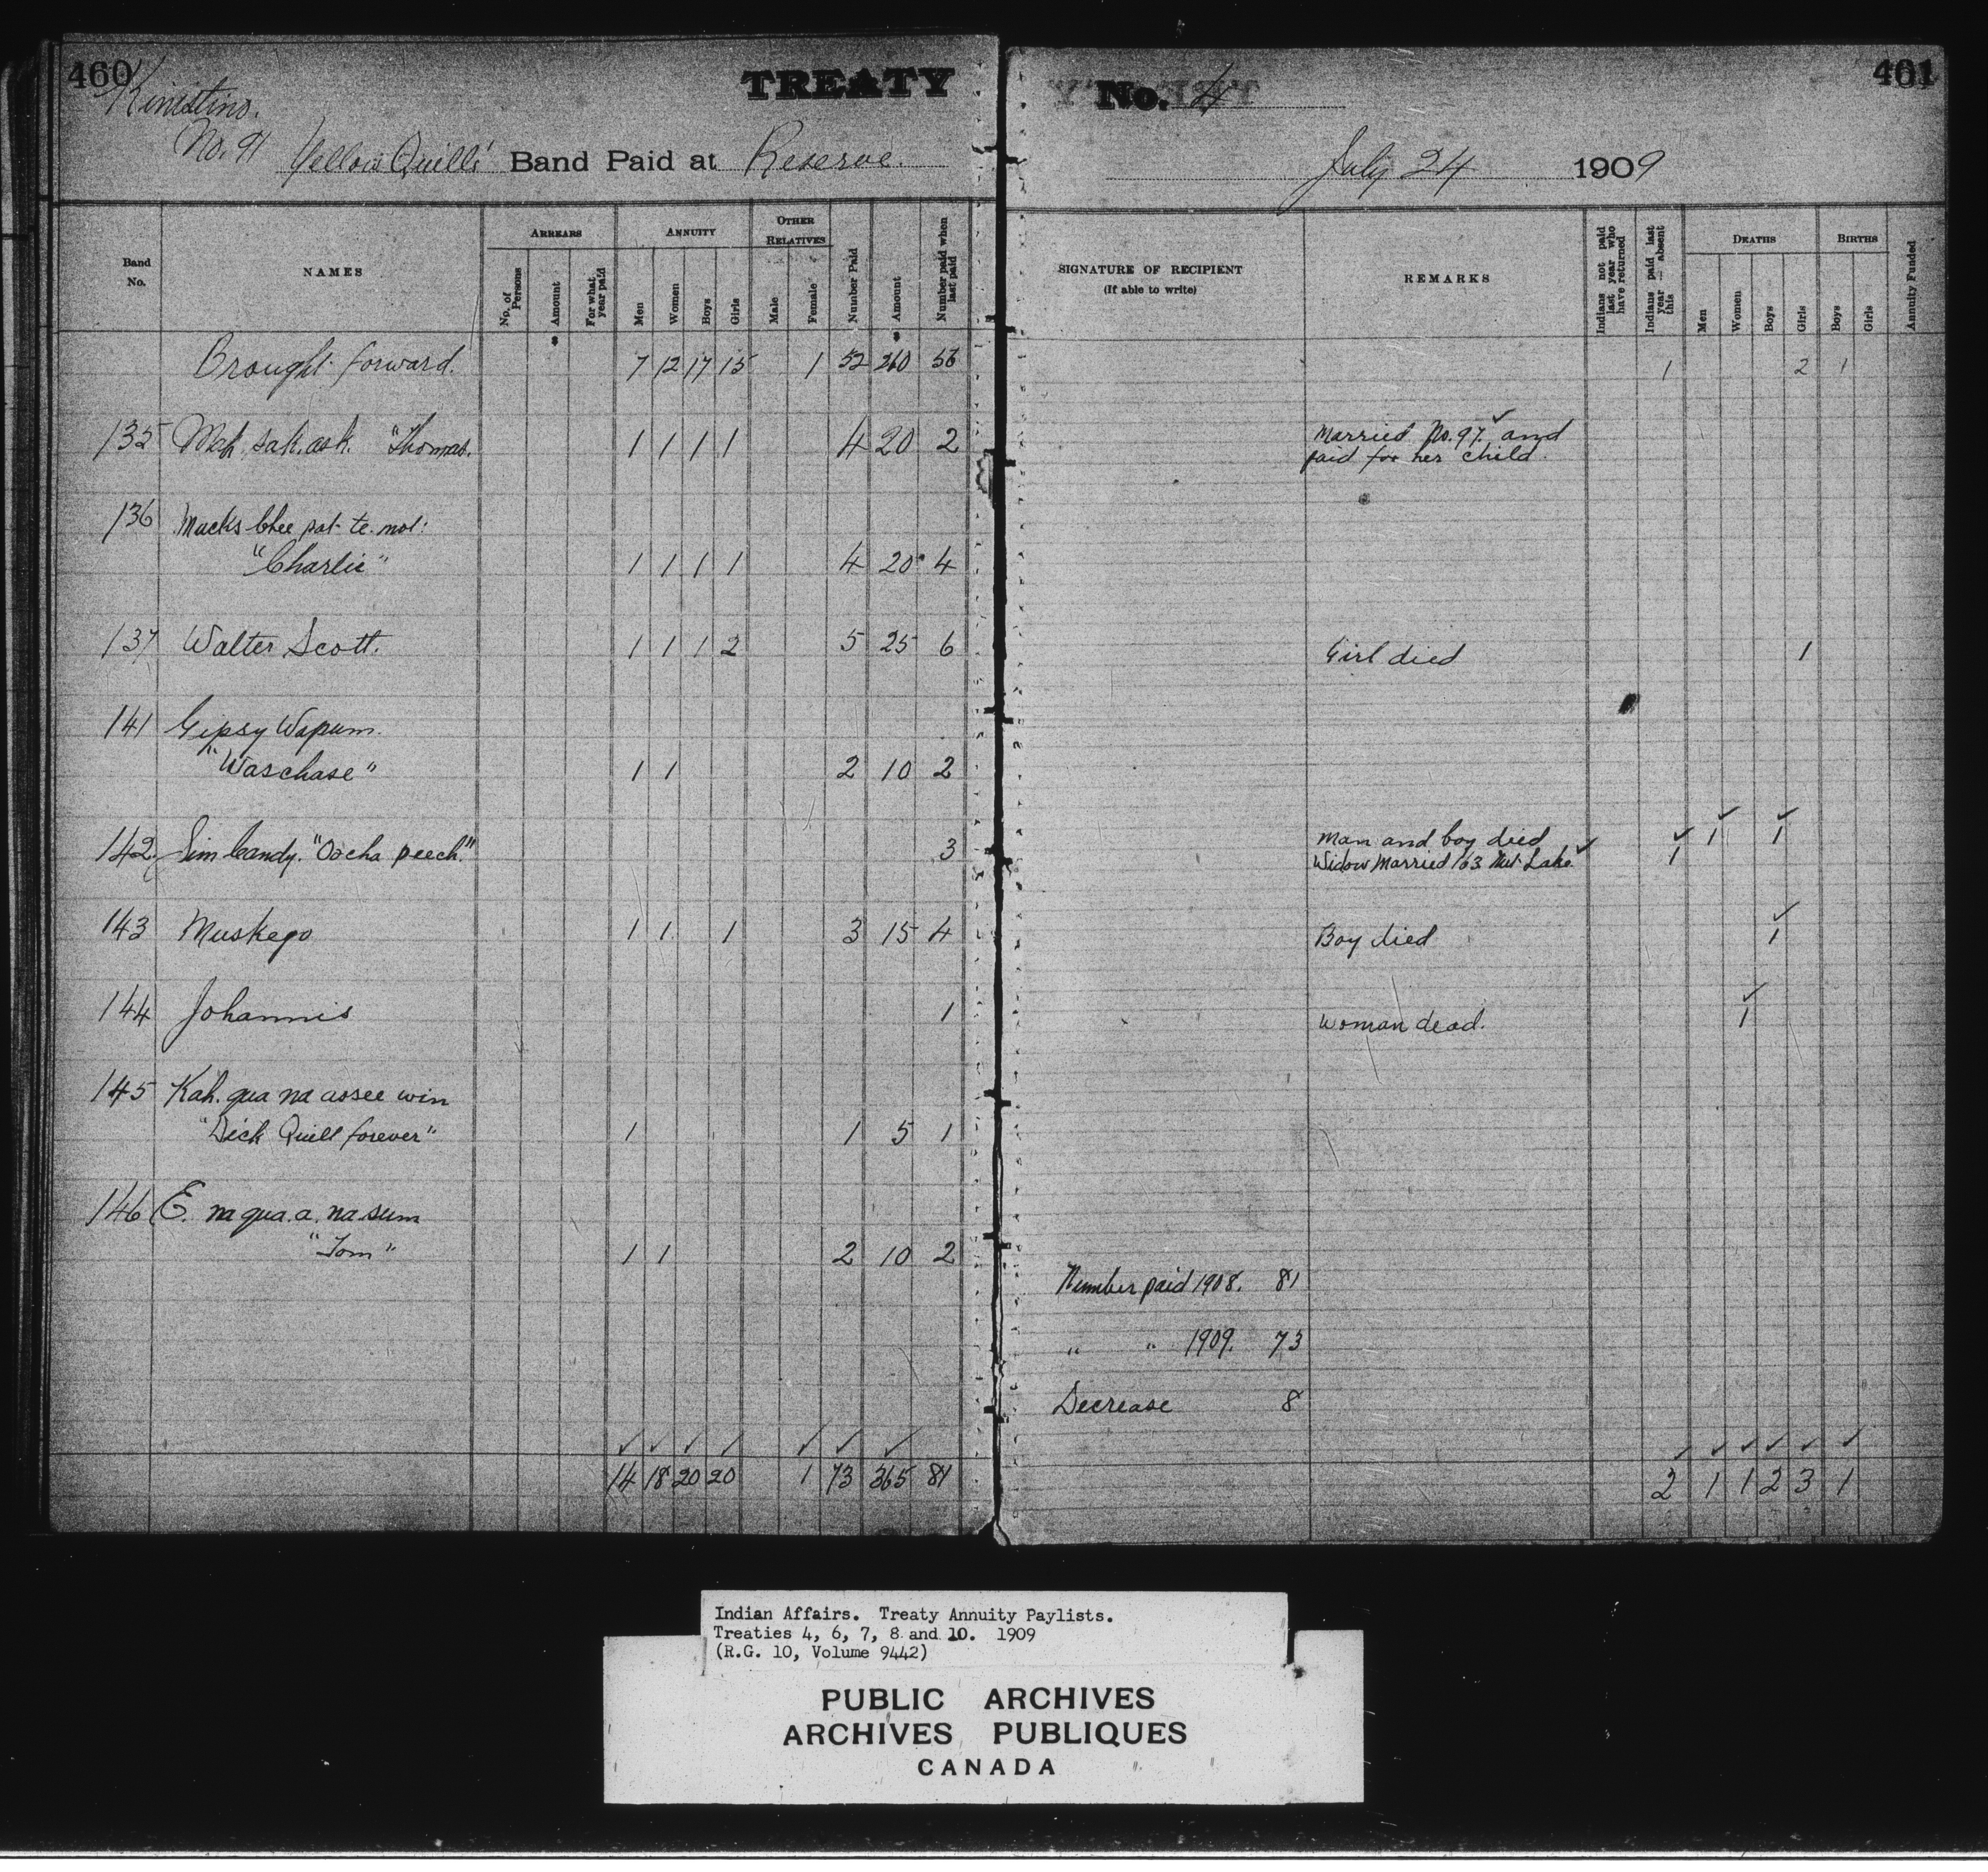 460
Kinistino.
No. 91
TREATY
Yellow Quills' Band Paid at Reserve.
Band No.
NAMES
ARREARS
No. of Persons
Amount
For what year paid
ANNUITY
Men
Women
Boys
Girls
OTHER RELATIVES
Male
Female
Number Paid
Amount
Number paid when last paid
Brought forward. 7 12 17 15 1 52 260 56
135 Mah. sak. ask. "Thomas. 1 1 1 1 4 20 2
136 Mucks Chee pat te. not:
"Charlie" 1 1 1 1 4 20 4
137 Walter Scott. 1 1 1 2 5 25 6
141 Gipsy Wapum.
"Waschase" 1 1 2 10 2
142. Jim Candy. "Oocha peech." 3
143 Muskego 1 1 1 3 15 4
144 Johannis 1
145 Kah. qua na assee win
"Dick Quill forever" 1 1 5 1
146 E. na qua. a. na sum
"Tom" 1 1 2 10 2
14 18 20 20 1 73 365 81
461
No. 4
July 24 1909
SIGNATURE OF RECIPIENT
(If able to write)
REMARKS
Indians not paid last year who have returned
Indians paid last year — absent this
DEATHS
Men
Women
Boys
Girls
BIRTHS
Boys
Girls
Annuity Funded
1 2 1
Married No. 97. and
paid for her child
Girl died 1
Man and boy died 1 1
Widow Married 163 Nut Lake 1
Boy died 1
Woman dead. 1
Number paid 1908. 81
" " 1909. 73
Decrease 8
2 1 1 2 3 1
Indian Affairs. Treaty Annuity Paylists.
Treaties 4, 6, 7, 8 and 10. 1909
(R.G. 10, Volume 9442)
PUBLIC ARCHIVES
ARCHIVES PUBLIQUES
CANADA